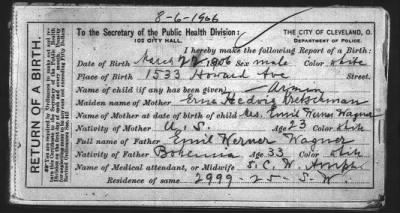 8-6-1906
To the Secretary of the Public Health Division: THE CITY OF CLEVELAND, O.
102 CITY HALL. DEPARTMENT OF POLICE.
I hereby make the following Report of a Birth:
Date of Birth March 22 1906 Sex male Color white
Place of Birth 1533 Howard Ave Street.
Name of child (if any has been given)
Maiden name of Mother Erna Hedwig Kretschman
Name of Mother at date of birth of child Mrs. Emil Werner Wagner
Nativity of Mother U. S. Age 23 Color white
Full name of Father Emil Werner Wagner
Nativity of Father Bohemia Age 33 Color white
Name of Medical attendant, or Midwife S. C. W.
Residence of same 2999-25- S. W.
RETURN OF A BIRTH.